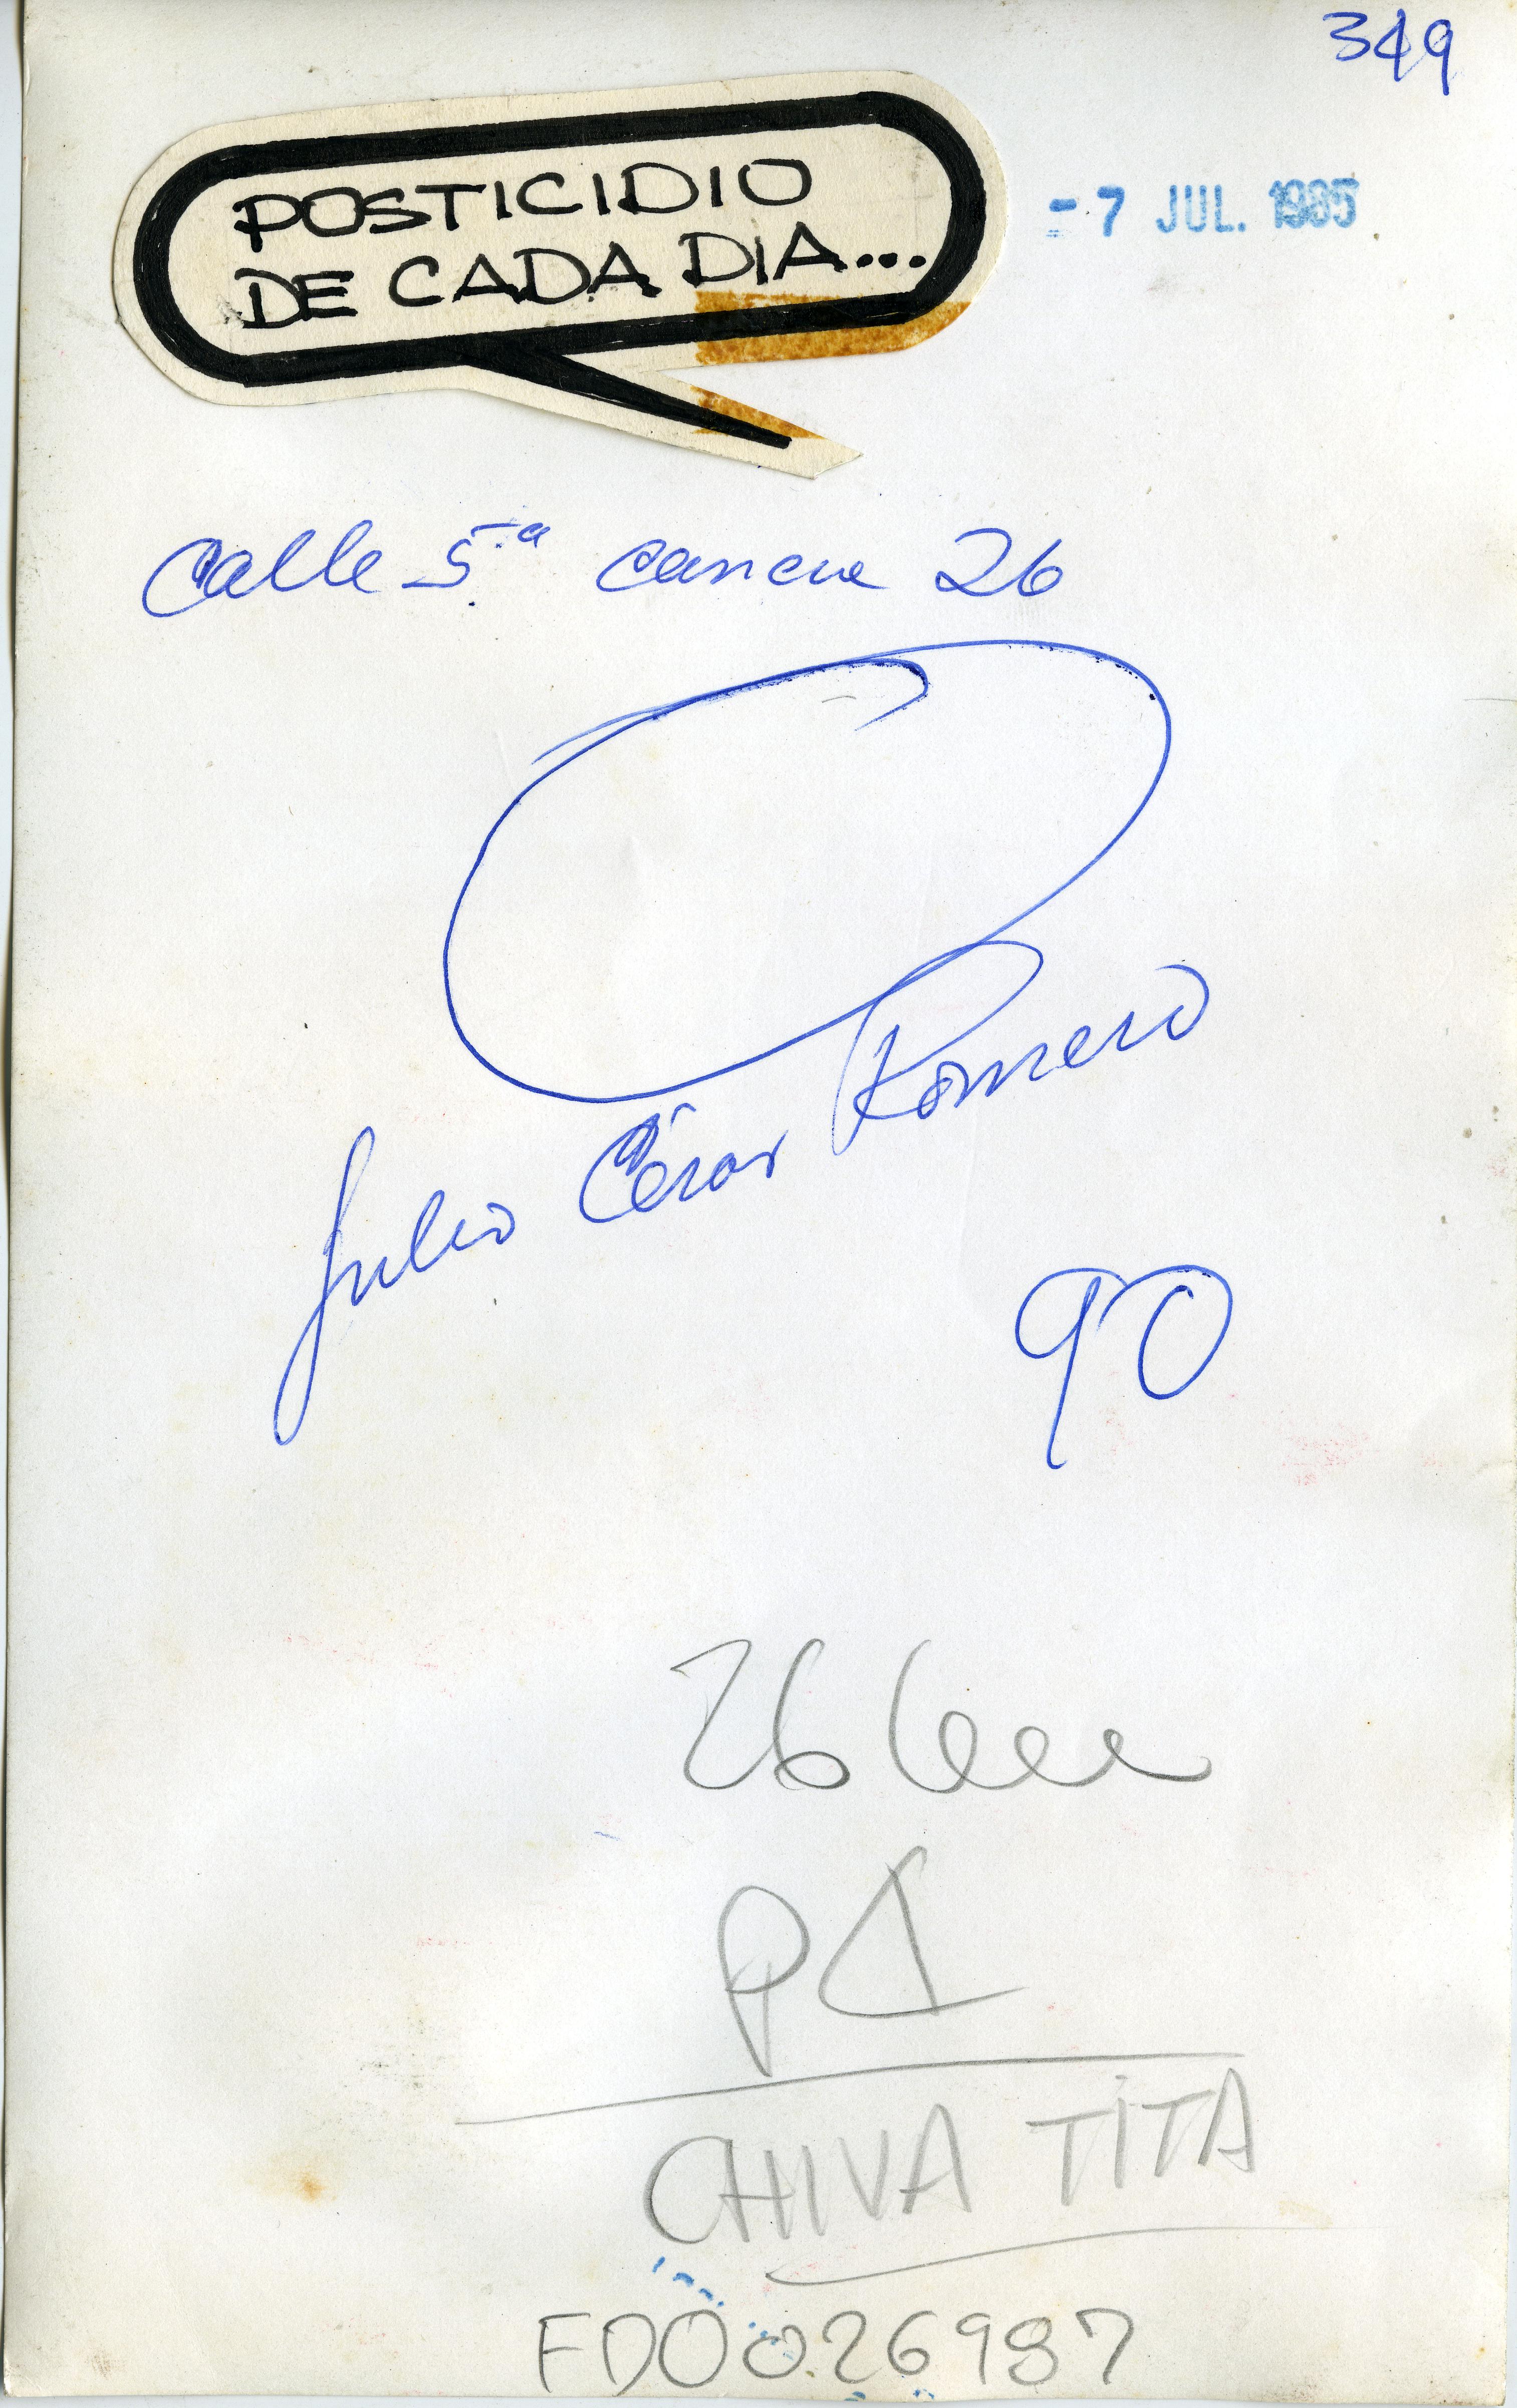 349
POSTICIDIO
DE CADA DIA...
-7 JUL. 1985
Calle 5ª carrera 26
Julio César Romero
90
26
P
CHIVA TITA
FD0026987